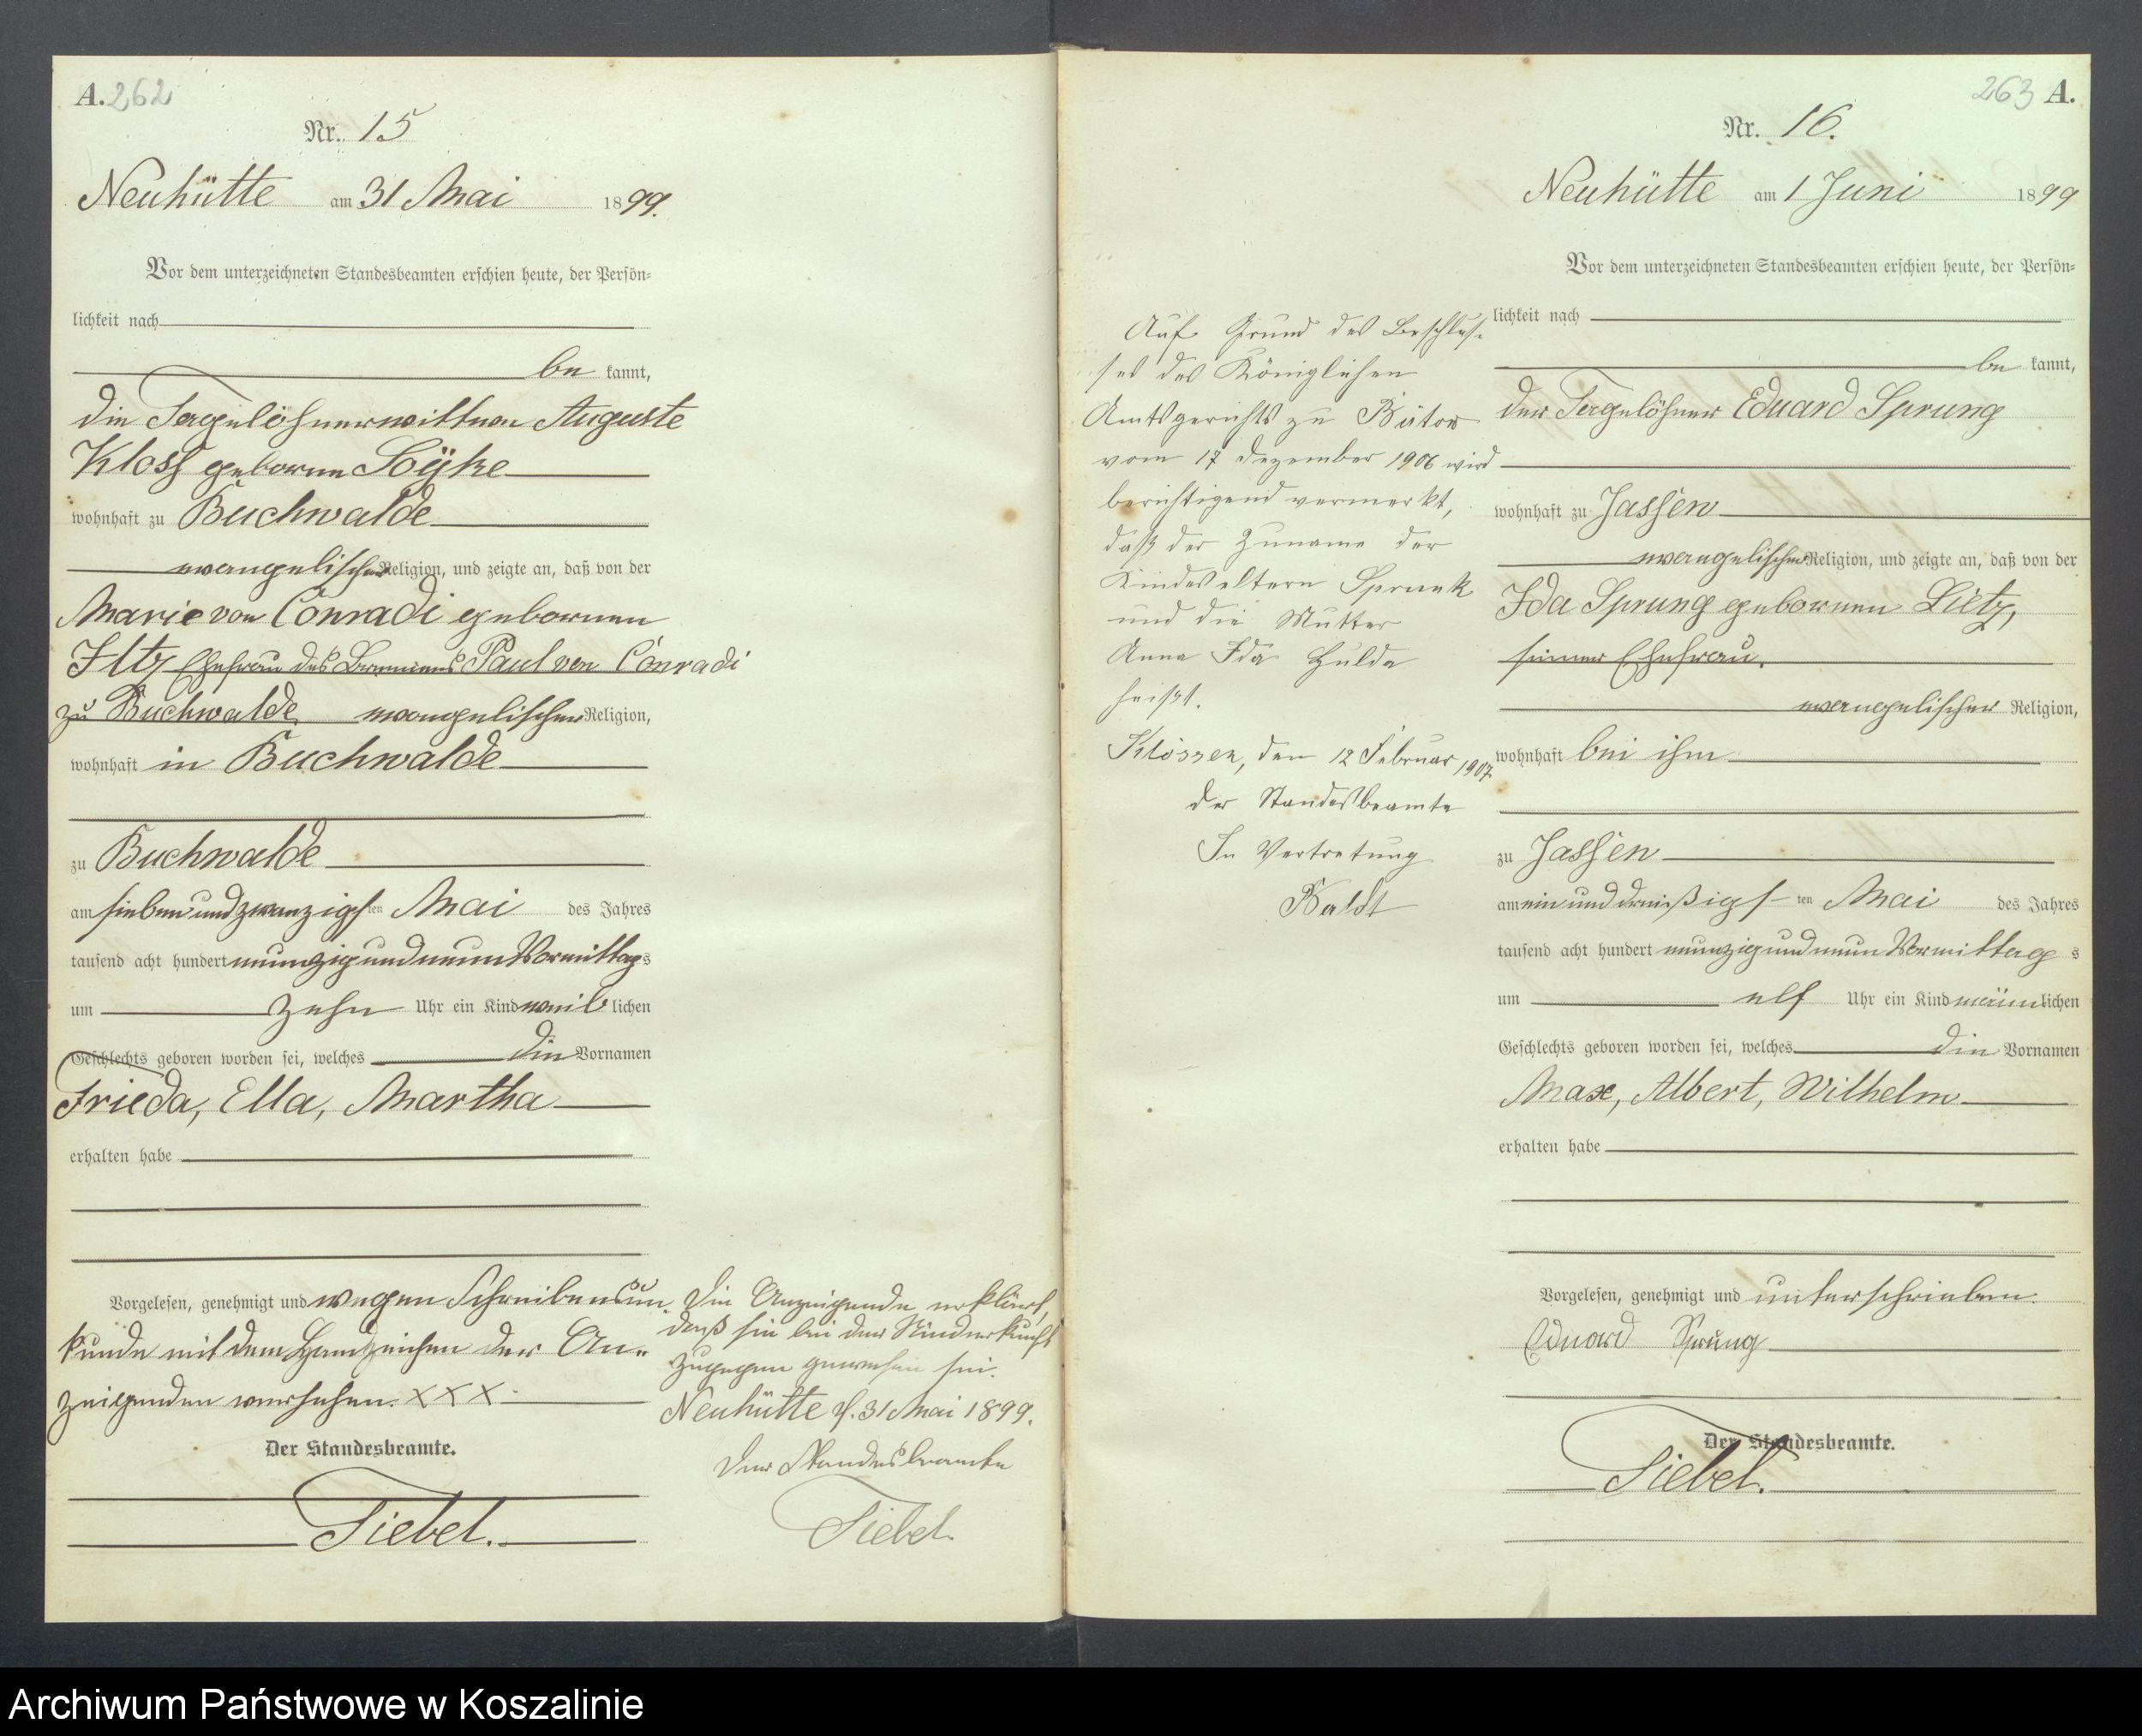 A. 262
Nr. 15
Neuhütte am 31 Mai 1899.
Vor dem unterzeichneten Standesbeamten erschien heute, der Persön=
lichkeit nach
be kannt,
die Tagelöhnerwittwe Auguste
Kloss geborene Söjke
wohnhaft zu Buchwalde
evangelischer Religion, und zeigte an, daß von der
Marie von Conradi gebornen
Iltz Ehefrau des Paul von Conradi
zu Buchwalde evangelischer Religion,
wohnhaft in Buchwalde
zu Buchwalde
am siebenundzwanzigsten Mai des Jahres
tausend acht hundert neunzig und neun Vormittags
um zehn Uhr ein Kind weiblichen
Geschlechts geboren worden sei, welches die Vornamen
Frieda, Ella, Martha
erhalten habe
Vorgelesen, genehmigt und wegen Schreibensun
kunde mit dem Handzeichen der An=
zeigenden versehen. XXX
Der Standesbeamte.
Siebel.
Die Anzeigende erklärt,
daß sie bei der Niederkunft
zugegen gewesen sei.
Neuhütte d. 31 Mai 1899.
Der Standesbeamte
Siebel.
263 A.
Nr. 16.
Neuhütte am 1 Juni 1899
Vor dem unterzeichneten Standesbeamten erschien heute, der Persön=
lichkeit nach
be kannt,
der Tagelöhner Eduard Sprung
wohnhaft zu Jassen
evangelischer Religion, und zeigte an, daß von der
Ida Sprung gebornen Lietz,
seiner Ehefrau.
evangelischer Religion,
wohnhaft bei ihm
zu Jassen
am einunddreißigsten Mai des Jahres
tausend acht hundert neunzig und neun Vormittags
um elf Uhr ein Kind männlichen
Geschlechts geboren worden sei, welches die Vornamen
Max, Albert, Wilhelm
erhalten habe
Vorgelesen, genehmigt und unterschrieben.
Eduard Sprung
Der Standesbeamte.
Siebel.
Auf Grund des Beschlus=
ses des Königlichen
Amtsgerichts zu Bütow
vom 17 Dezember 1906 wird
berichtigend vermerkt,
daß der Zuname der
Kindeseltern Sprunk
und die Mutter
Anna Ida Hulda
heißt.
Klössen, den 12 Februar 1907
der Standesbeamte
In Vertretung
Baldt
Archiwum Państwowe w Koszalinie